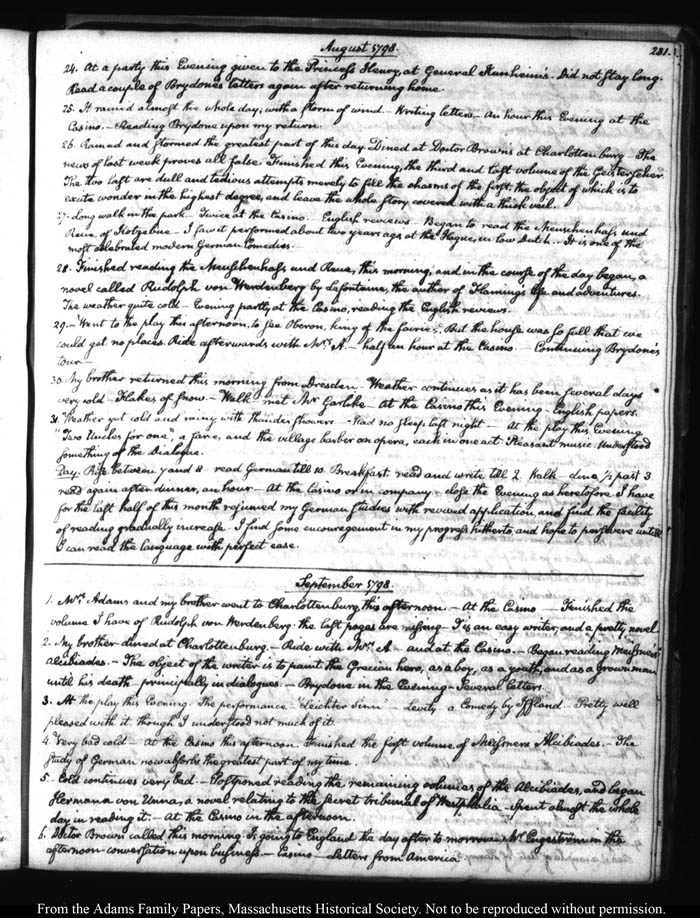 August 1798.
231.
24. At a party this Evening given to the Princess Henry, at General Kunheim's. Did not stay long.
Read a couple of Brydone's letters again after returning home.
25. It rained almost the whole day; with a storm of wind — Writing letters — An hour this Evening at the
Casino. — Reading Brydone upon my return.
26. Rained and stormed the greatest part of this day. Dined at Doctor Brown's at Charlottenburg. The
news of last week proves all false. Finished this Evening, the third and last volume of the Geisterseher.
The two last are dull and tedious attempts merely to fill the chasms of the first, the object of which is to
excite wonder in the highest degree, and leave the whole story covered with a thick veil.
27. Long walk in the park — Twice at the Casino. English reviews. Began to read the Menschenhass und
Reue, of Kotzebue — I saw it performed about two years ago at the Hague, in low Dutch. It is one of the
most celebrated modern German Comedies.
28. Finished reading the Menschenhass und Reue, this morning; and in the course of the day began, a
novel called Rudolph von Werdenberg by Lafontaine, the author of Flaming's life and adventures.
The weather quite cold — Evening partly at the Casino, reading the English reviews.
29. Went to the play this afternoon, to see Oberon, king of the fairies; But the house was so full that we
could get no places. Ride afterwards with Mrs. A — half an hour at the Casino. — Continuing Brydone's
tour —
30. My brother returned this morning from Dresden — Weather continues as it has been several days
very cold — Flakes of snow — Walk — met Mr Garlike — At the Casino this Evening — English papers.
31. Weather yet cold and rainy with thunder showers — Had no sleep last night — At the play this Evening
"Two Uncles for one, a farce, and the village barber an opera, each in one act. Pleasant music. Understood
something of the Dialogue.
Day. Rise between 7 and 8 — read German till 10. Breakfast. read and write till 2. Walk — dine 1/2 past 3
read again after dinner, an hour — At the Casino or in company — close the Evening as heretofore. I have
for the last half of this month resumed my German studies with revived application, and find the facility
of reading gradually increase. I find some encouragement in my progress hitherto, and hope to persevere untill
I can read the language with perfect ease.
September 1798.
1. Mrs. Adams and my brother went to Charlottenburg, this afternoon. — At the Casino — Finished the
volume I have of Rudolph von Werdenberg. the last pages are missing. I is an easy writer, and a pretty novel.
2. My brother dined at Charlottenburg. — Ride with Mrs. A — and at the Casino. — Began reading Meissners
Alcibiades. — The object of the writer is to paint the Grecian hero, as a boy, as a youth, and as a grown man
until his death — principally in dialogues. — Brydone in the Evening — Several letters.
3. At the play this Evening. The performance "Leichter Sinn" — Levity a Comedy by Iffland. Pretty well
pleased with it, though I understood not much of it.
4. Very bad cold — At the Casino this afternoon. Finished the first volume of Meissners Alcibiades. — The
study of German now absorbs the greatest part of my time.
5. Cold continues very bad. — Postponed reading the remaining volumes of the Alcibiades, and began
Hermann von Unna, a novel relating to the secret tribunal of Westphalia. Spent almost the whole
day in reading it. — At the Casino in the afternoon.
6. Doctor Brown called this morning. Is going to England the day after to morrow. Mr Engestrom in the
afternoon — conversation upon business. — Casino — Letters from America.
From the Adams Family Papers, Massachusetts Historical Society. Not to be reproduced without permission.